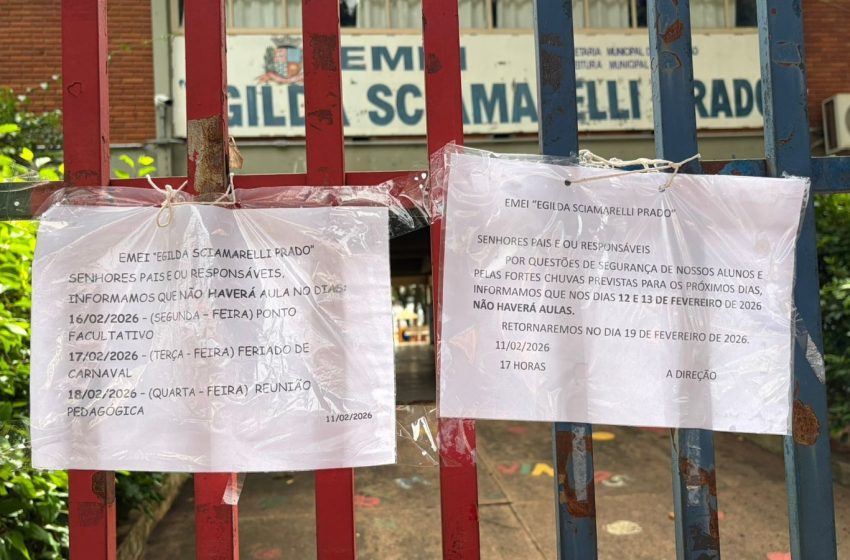 EMEI
ETARIA MUNICIPAL D
EITURA MUNICIPAL
GILDA SCIAMARELLI PRADO
EMEI "EGILDA SCIAMARELLI PRADO"
SENHORES PAIS E OU RESPONSÁVEIS,
INFORMAMOS QUE NÃO HAVERÁ AULA NO DIAS:
16/02/2026 - (SEGUNDA - FEIRA) PONTO
FACULTATIVO
17/02/2026 - (TERÇA - FEIRA) FERIADO DE
CARNAVAL
18/02/2026 - (QUARTA - FEIRA) REUNIÃO
PEDAGÓGICA
11/02/2026
EMEI "EGILDA SCIAMARELLI PRADO"
SENHORES PAIS E OU RESPONSÁVEIS
POR QUESTÕES DE SEGURANÇA DE NOSSOS ALUNOS E
PELAS FORTES CHUVAS PREVISTAS PARA OS PRÓXIMOS DIAS,
INFORMAMOS QUE NOS DIAS 12 E 13 DE FEVEREIRO DE 2026
NÃO HAVERÁ AULAS.
RETORNAREMOS NO DIA 19 DE FEVEREIRO DE 2026.
11/02/2026
17 HORAS
A DIREÇÃO